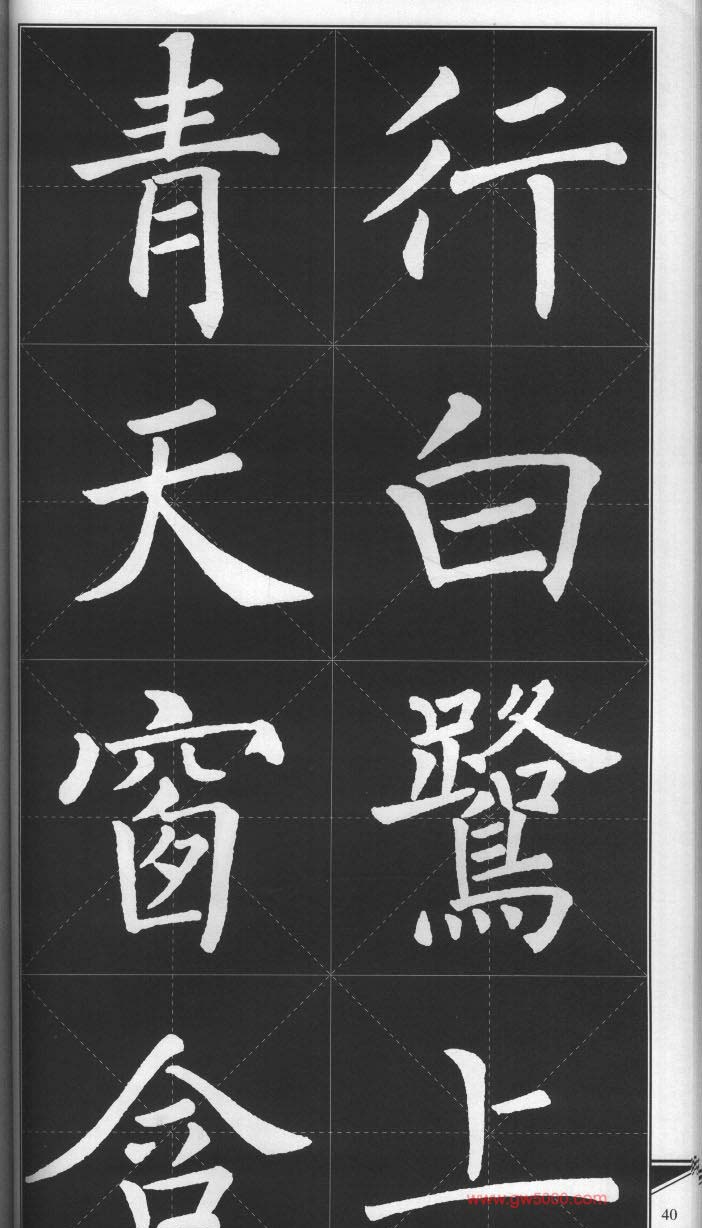 行白鷺上
青天窗含
www.gw5000.com
40